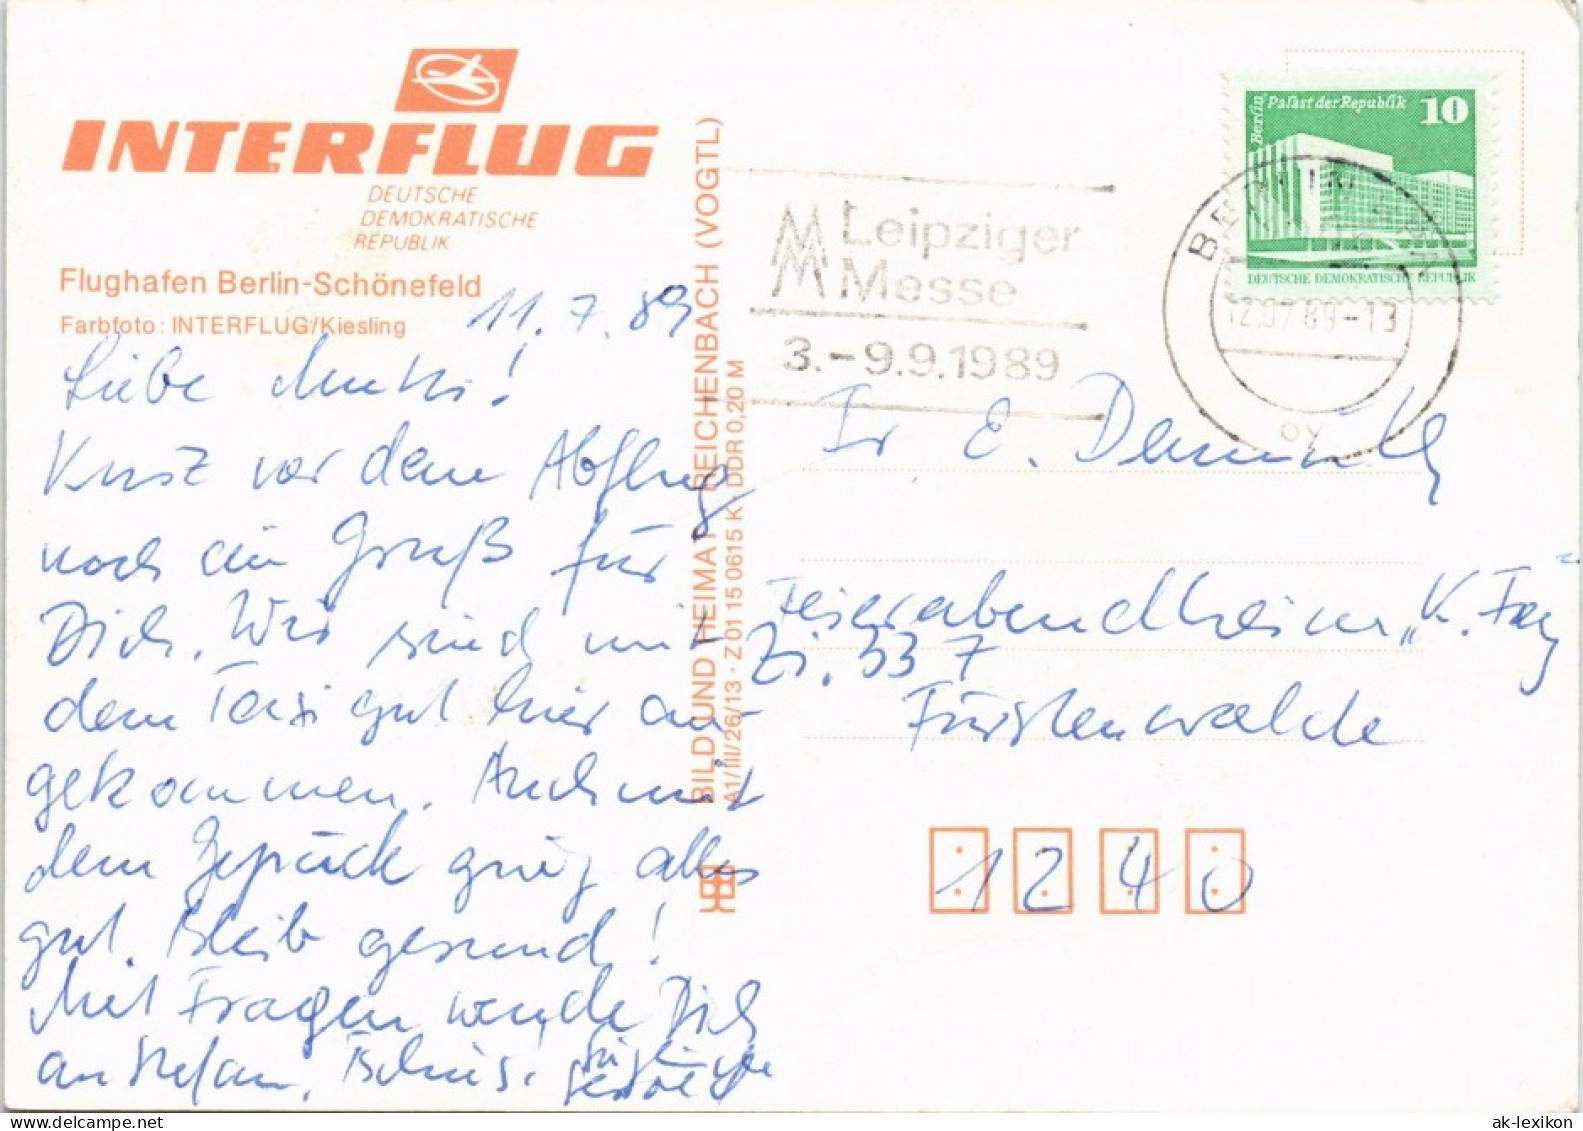 INTERFLUG
DEUTSCHE
DEMOKRATISCHE
REPUBLIK
Flughafen Berlin-Schönefeld
Farbfoto: INTERFLUG/Kiesling
11.7.89
Liebe
Kurz vor dem Abflug
noch ein Gruß für
Dich. Wir sind mit
dem Taxi gut hier an-
gekommen. Auch mit
dem Gepäck ging alles
gut. Bleib gesund!
Mit Fragen wende Dich
an Stefan. Tschüs!
BILD UND HEIMAT REICHENBACH (VOGTL)
A1/III/26/13 · Z 01 15 0615 K DDR 0,20 M
Leipziger
Messe
3.–9.9.1989
Berlin, Palast der Republik 10
DEUTSCHE DEMOKRATISCHE REPUBLIK
BERLIN
12.07.89-13
oy
Fr. E.
Feierabendheim „K.
Zi. 337
Fürstenwalde
1240
ak-lexikon
delcampe.net